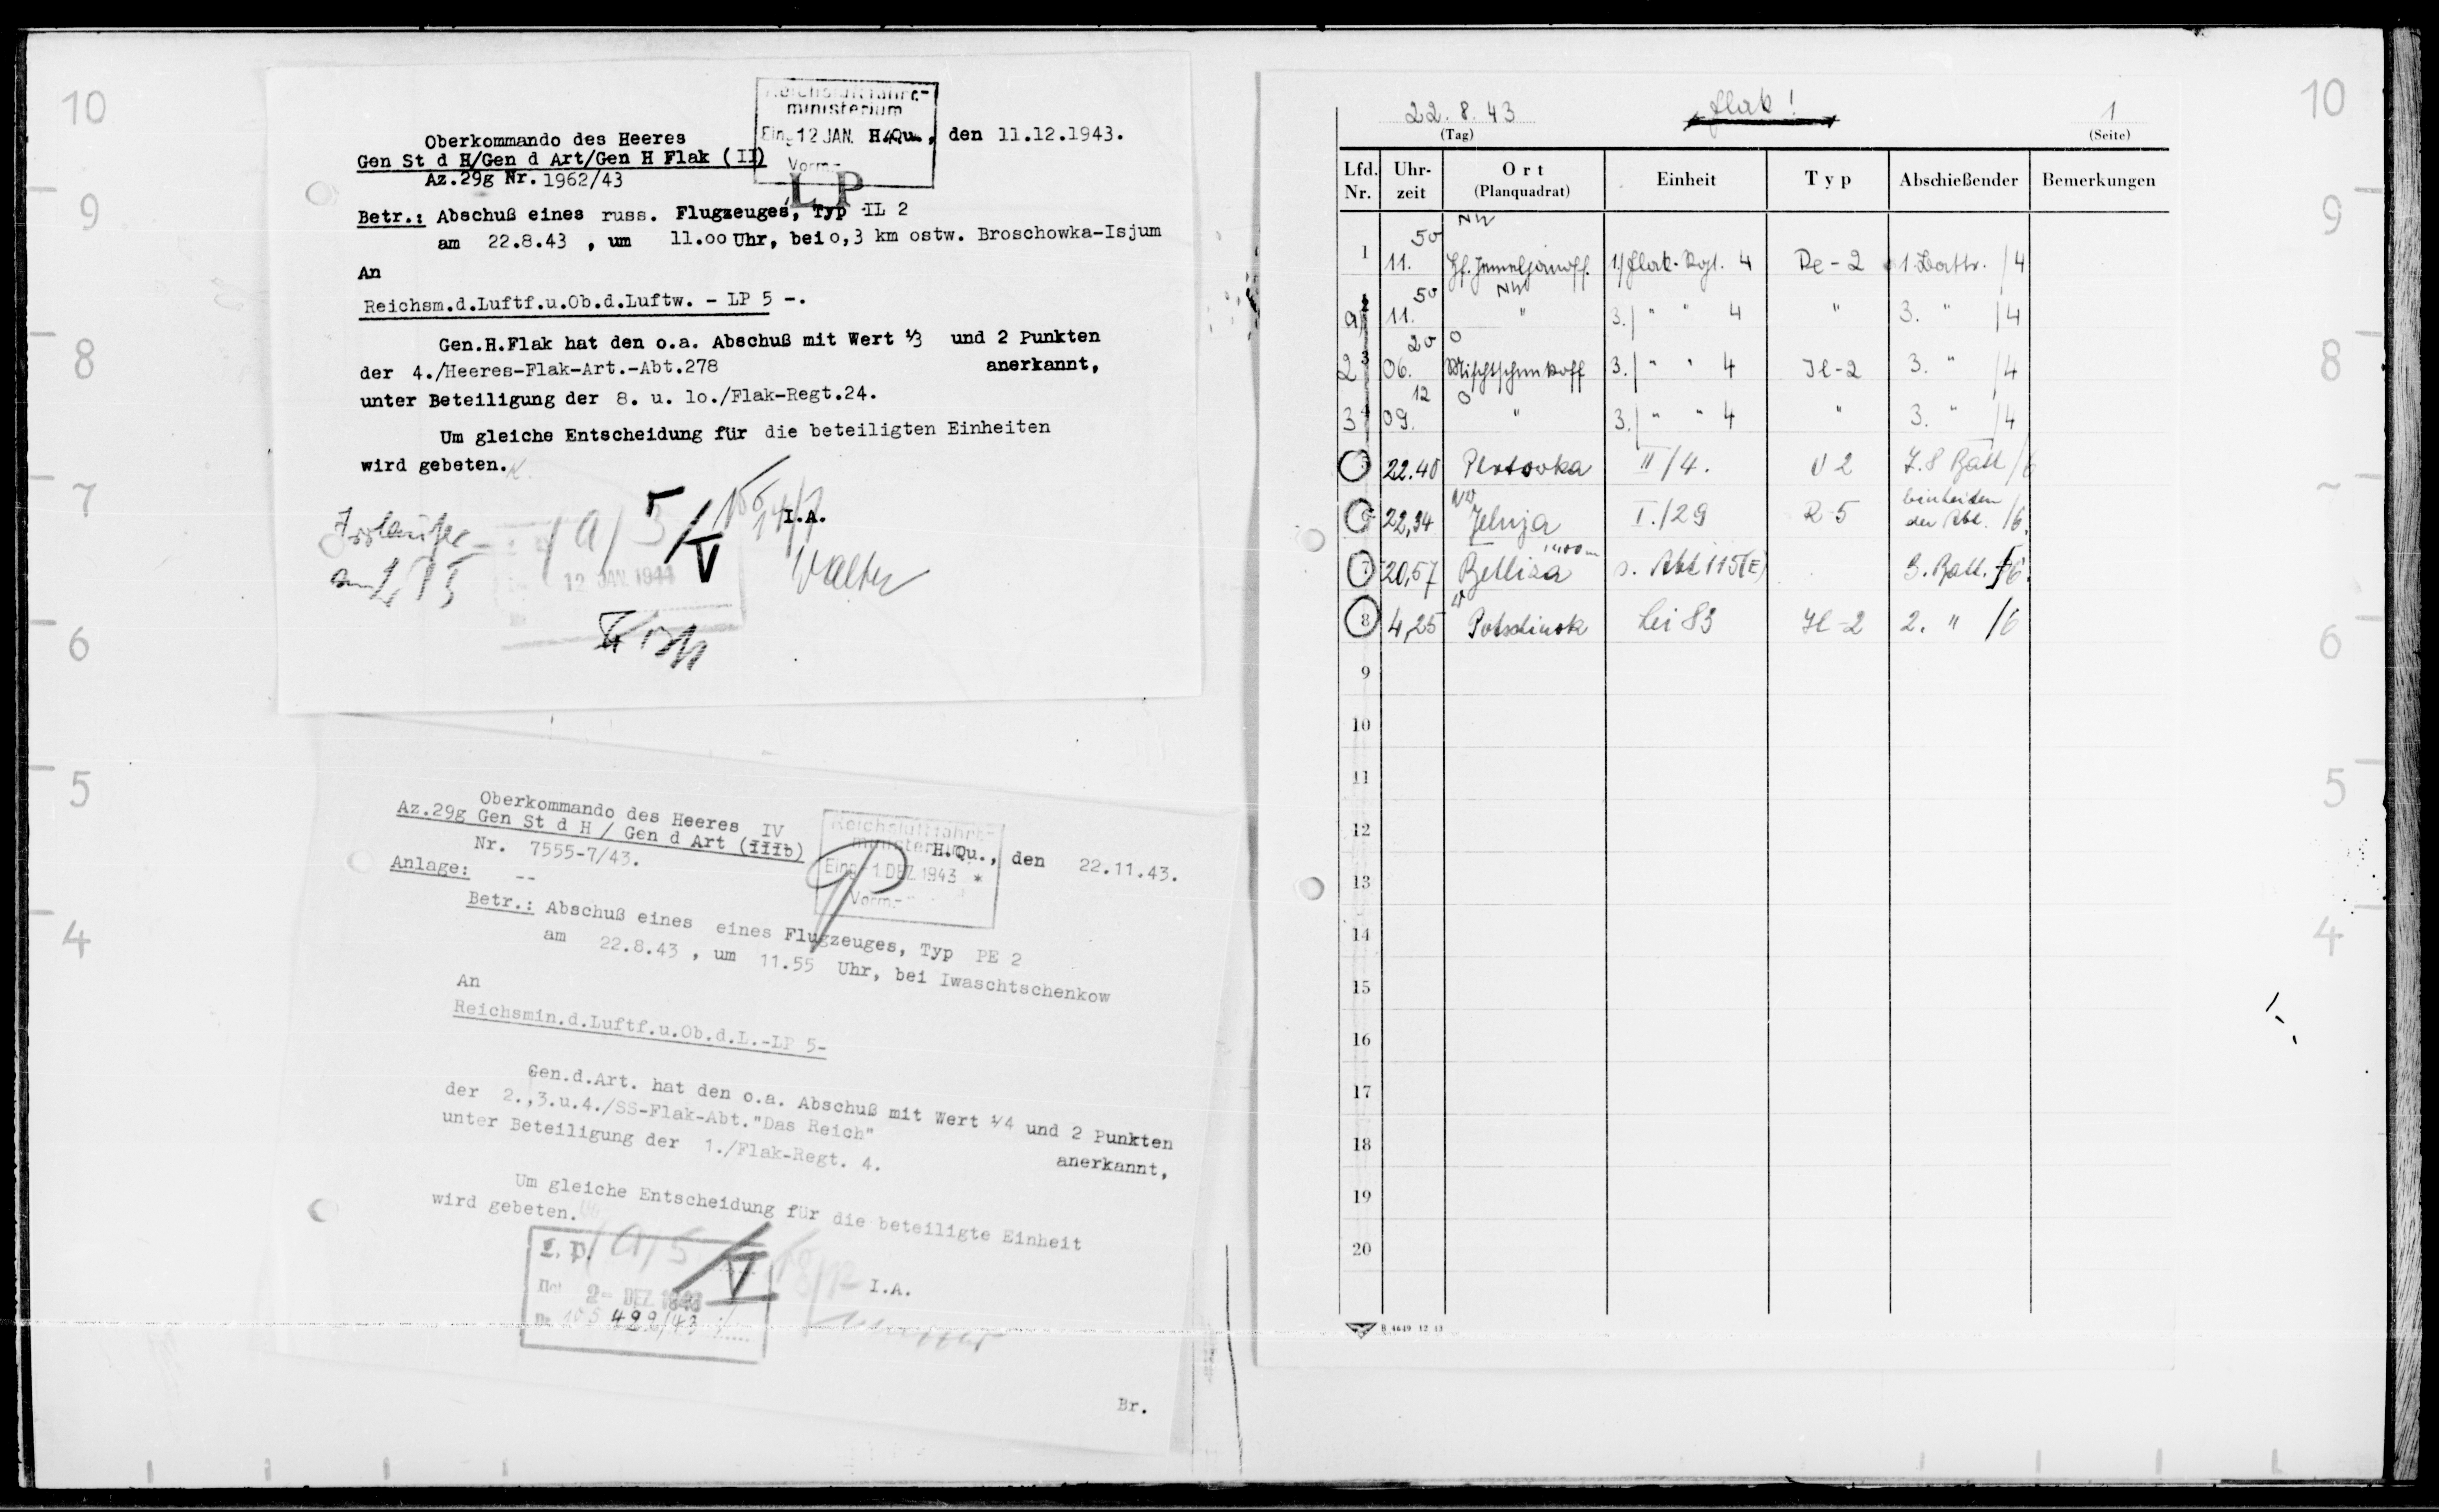 10
9
8
7
6
5
4
Reichsluftfahrt-
ministerium
Eing. 12 JAN.
Vorm.-
LP
Oberkommando des Heeres
Gen St d H/Gen d Art/Gen H Flak (II)
Az.29g Nr. 1962/43
H.Qu., den 11.12.1943.
Betr.: Abschuß eines russ. Flugzeuges, Typ IL 2
am 22.8.43 , um 11.oo Uhr, bei o,3 km ostw. Broschowka-Isjum
An
Reichsm.d.Luftf.u.Ob.d.Luftw. - LP 5 -.
Gen.H.Flak hat den o.a. Abschuß mit Wert 1/3 und 2 Punkten
der 4./Heeres-Flak-Art.-Abt.278 anerkannt,
unter Beteiligung der 8. u. lo./Flak-Regt.24.
Um gleiche Entscheidung für die beteiligten Einheiten
wird gebeten.
I.A.
Walter
12 JAN. 1944
V
Oberkommando des Heeres
Az.29g Gen St d H / Gen d Art (IIIb) IV
Nr. 7555-7/43.
Anlage: --
Reichsluftfahrt-
ministerium
Eing. -1 DEZ. 1943 *
Vorm.-
H.Qu., den 22.11.43.
Betr.: Abschuß eines eines Flugzeuges, Typ PE 2
am 22.8.43 , um 11.55 Uhr, bei Iwaschtschenkow
An
Reichsmin.d.Luftf.u.Ob.d.L.-LP 5-
Gen.d.Art. hat den o.a. Abschuß mit Wert 1/4 und 2 Punkten
der 2.,3.u.4./SS-Flak-Abt."Das Reich" anerkannt,
unter Beteiligung der 1./Flak-Regt. 4.
Um gleiche Entscheidung für die beteiligte Einheit
wird gebeten.
I.A.
L.P.
2- DEZ. 1943
499/43
V
Br.
22.8.43 Flak! 1
(Tag) (Seite)
Lfd. Nr. Uhr-zeit Ort (Planquadrat) Einheit Typ Abschießender Bemerkungen
1 11.50 NW 1./Flak-Rgt. 4 Pe-2 1. Battr. /4
a 11.50 NW " 3./ " " 4 " 3. " /4
2 06.20 O 3./ " " 4 Jl-2 3. " /4
3 09.12 O " 3./ " " 4 " 3. " /4
5 22.40 II/4. U 2 7.8 Batt /6
6 22,34 NW Jelnja I./29 R 5 Einheiten der Abt. /6.
7 20,57 s. Abt 115(E) 3. Batt. /6.
8 4,25 W Lei 83 Jl-2 2. " /6
9
10
11
12
13
14
15
16
17
18
19
20
B 4649 12 43
10
9
8
6
5
4